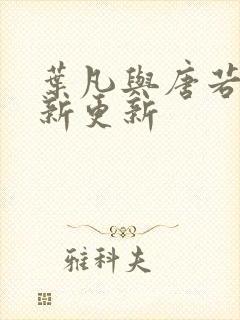 葉凡與唐若
新更新
雅科夫